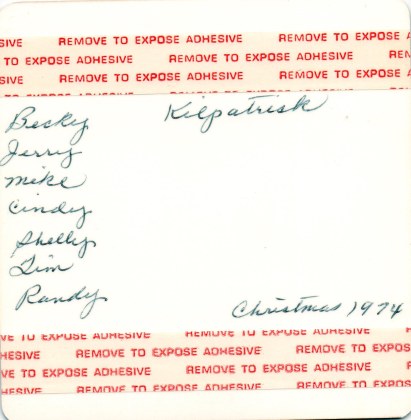 SIVE REMOVE TO EXPOSE ADHESIVE REMOVE TO EXP
TO EXPOSE ADHESIVE REMOVE TO EXPOSE ADHESIVE REM
SIVE REMOVE TO EXPOSE ADHESIVE REMOVE TO EXP
TO EXPOSE ADHESIVE REMOVE TO EXPOSE ADHESIVE
Becky Kilpatrisk
Jerry
Mike
Cindy
Shelly
Tim
Randy
Christmas 1974
VE TO EXPOSE ADHESIVE REMOVE TO EXPOSE ADHESIVE
HESIVE REMOVE TO EXPOSE ADHESIVE REMOVE TO EXPOS
VE TO EXPOSE ADHESIVE REMOVE TO EXPOSE ADHESIVE
HESIVE REMOVE TO EXPOSE ADHESIVE REMOVE TO EXPOS